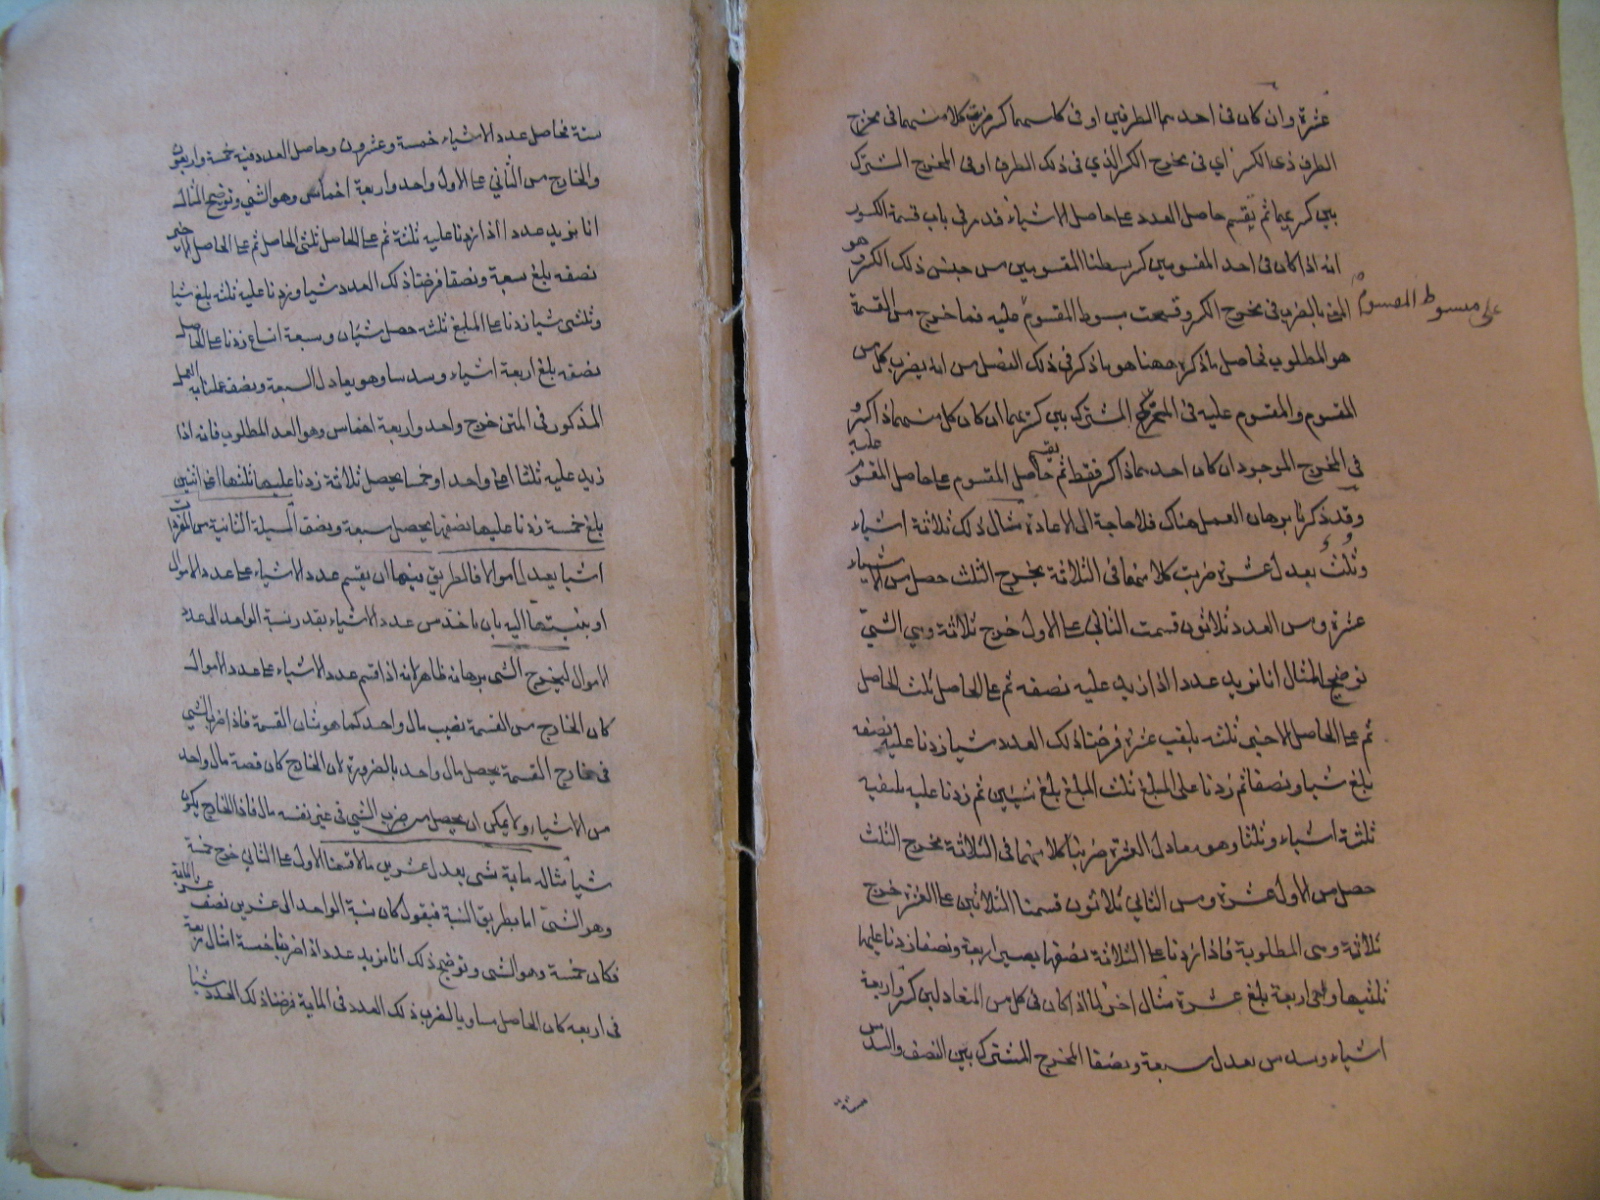 عشرة وان كان فى احدهما الطرفين او فى كلاسهما كسر ضربت كلا منهما فى مخرج
الطرف ذى الكسر اى فى مخرج الكسر الذي فى ذلك الطرف او فى المخرج المشترك
بين كسريهما ثم يقسم حاصل العدد على حاصل الاشياء قد مر فى باب قسمة الكسور
انه اذا كان فى احد المقسومين كسر بسطنا المقسومين من جنس ذلك الكسر وهو
بالضرب فى مخرج الكسر وقسمت مبسوط المقسوم عليه فما خرج من القسمة
على مبسوط المقسوم
هو المطلوب فحاصل ماذكره ههنا هو ماذكر فى ذلك الفصل من انه يضرب كل من
المقسوم والمقسوم عليه فى المخرج المشترك بين كسريهما ان كان كل منهما ذا كسر و
فى المخرج الموجود ان كان احدهما ذا كسر فقط ثم يقسم حاصل المقسوم على حاصل المقسوم عليه
وقد ذكرنا برهان العمل هناك فلا حاجة الى الاعادة مثال ذلك ثلاثة اشياء
وثلث يعدل عشرة ضربت كلا منهما فى الثلاثة مخرج الثلث حصل من الاشياء
عشرة ومن العدد ثلاثون قسمت الثاني على الاول خرج ثلاثة وهي الشئ
توضيح المثال انا نريد عددا اذا زيد عليه نصفه ثم على الحاصل ثلث الحاصل
ثم على الحاصل الاخير ثلثه بلغت عشرة فرضنا ذلك العدد شيا زدنا عليه نصفه
بلغ شيا ونصفا ثم زدنا على المبلغ ثلث المبلغ بلغ شيئين ثم زدنا عليه ثلثيه
ثلثة اشياء وثلثا وهو معادل العشرة ضربنا كلا منهما فى الثلاثة مخرج الثلث
حصل من الاول عشرة ومن الثاني ثلاثون قسمنا الثلاثين على العشرة خرج
ثلاثة وهى المطلوبة فاذا زدنا على الثلاثة نصفها يصير اربعة ونصفا زدنا عليها
ثلثيها وهى اربعة بلغ عشرة مثال اخر لما اذا كان فى كل من المتعادلين كسر واربعة
اشياء وسدس يعدل سبعة ونصفا المخرج المشترك بين النصف والسدس
ستة
ستة فحاصل عدد الاشياء خمسة وعشرون وحاصل العدد فيه خمسة واربعون
والخارج من الثاني على الاول واحد واربعة اخماس وهو الشئ وتوضيح المثال
انا نريد عددا اذا زدنا عليه ثلثة ثم على الحاصل ثلثى الحاصل ثم على الحاصل الاخير
نصفه بلغ سبعة ونصفا فرضنا ذلك العدد شيا وزدنا عليه ثلثه بلغ شيا
وثلثى شيا زدنا على المبلغ ثلثه حصل شيئان وسبعة اتساع زدنا على الحاصل
نصفه بلغ اربعة اشياء وسدسا وهو يعادل السبعة ونصف عملنا به العمل
المذكور فى المتن خرج واحد واربعة اخماس وهو العدد المطلوب فانه اذا
زيد عليه ثلثا اعنى واحد او خمسا يحصل ثلاثة زدنا عليها ثلثها اعنى اثنين
بلغ خمسة زدنا عليها نصفها يحصل سبعة ونصف المسئلة الثانية من المفردات
اشيا يعدل اموالا فالطريق فيها ان يقسم عدد الاشياء على عدد الاموال
او بنسبتها اليه بان ياخذ من عدد الاشياء بقدر نسبة الواحد الى عدد
الاموال ليخرج الشى برهانه ظاهر لانه اذا قسم عدد الاشياء على عدد الاموال
كان الخارج من القسمة نصيب مال واحد كما هو شان القسمة فاذا ضرب الشي
فى خارج القسمة يحصل مال واحد بالضرورة لان الخارج كان قصة مال واحد
من الاشياء ولا يمكن ان يحصل من ضرب الشيئ فى غير نفسه مال فاذا الخارج يكون
شيا مثاله ماية شى يعدل عشرين مالا قسمنا الاول على الثاني خرج خمسة
وهو الشئ اما بطريق النسبة فيقول كان نسبة الواحد الى عشرين نصف عشر الماية
فكان خمسة وهو الشى وتوضيح ذلك انا نريد عددا اذا ضربنا خمسة امثال مربعه
فى اربعه كان الحاصل مساويا لضرب ذلك العدد فى الماية فرضنا ذلك العدد شيا